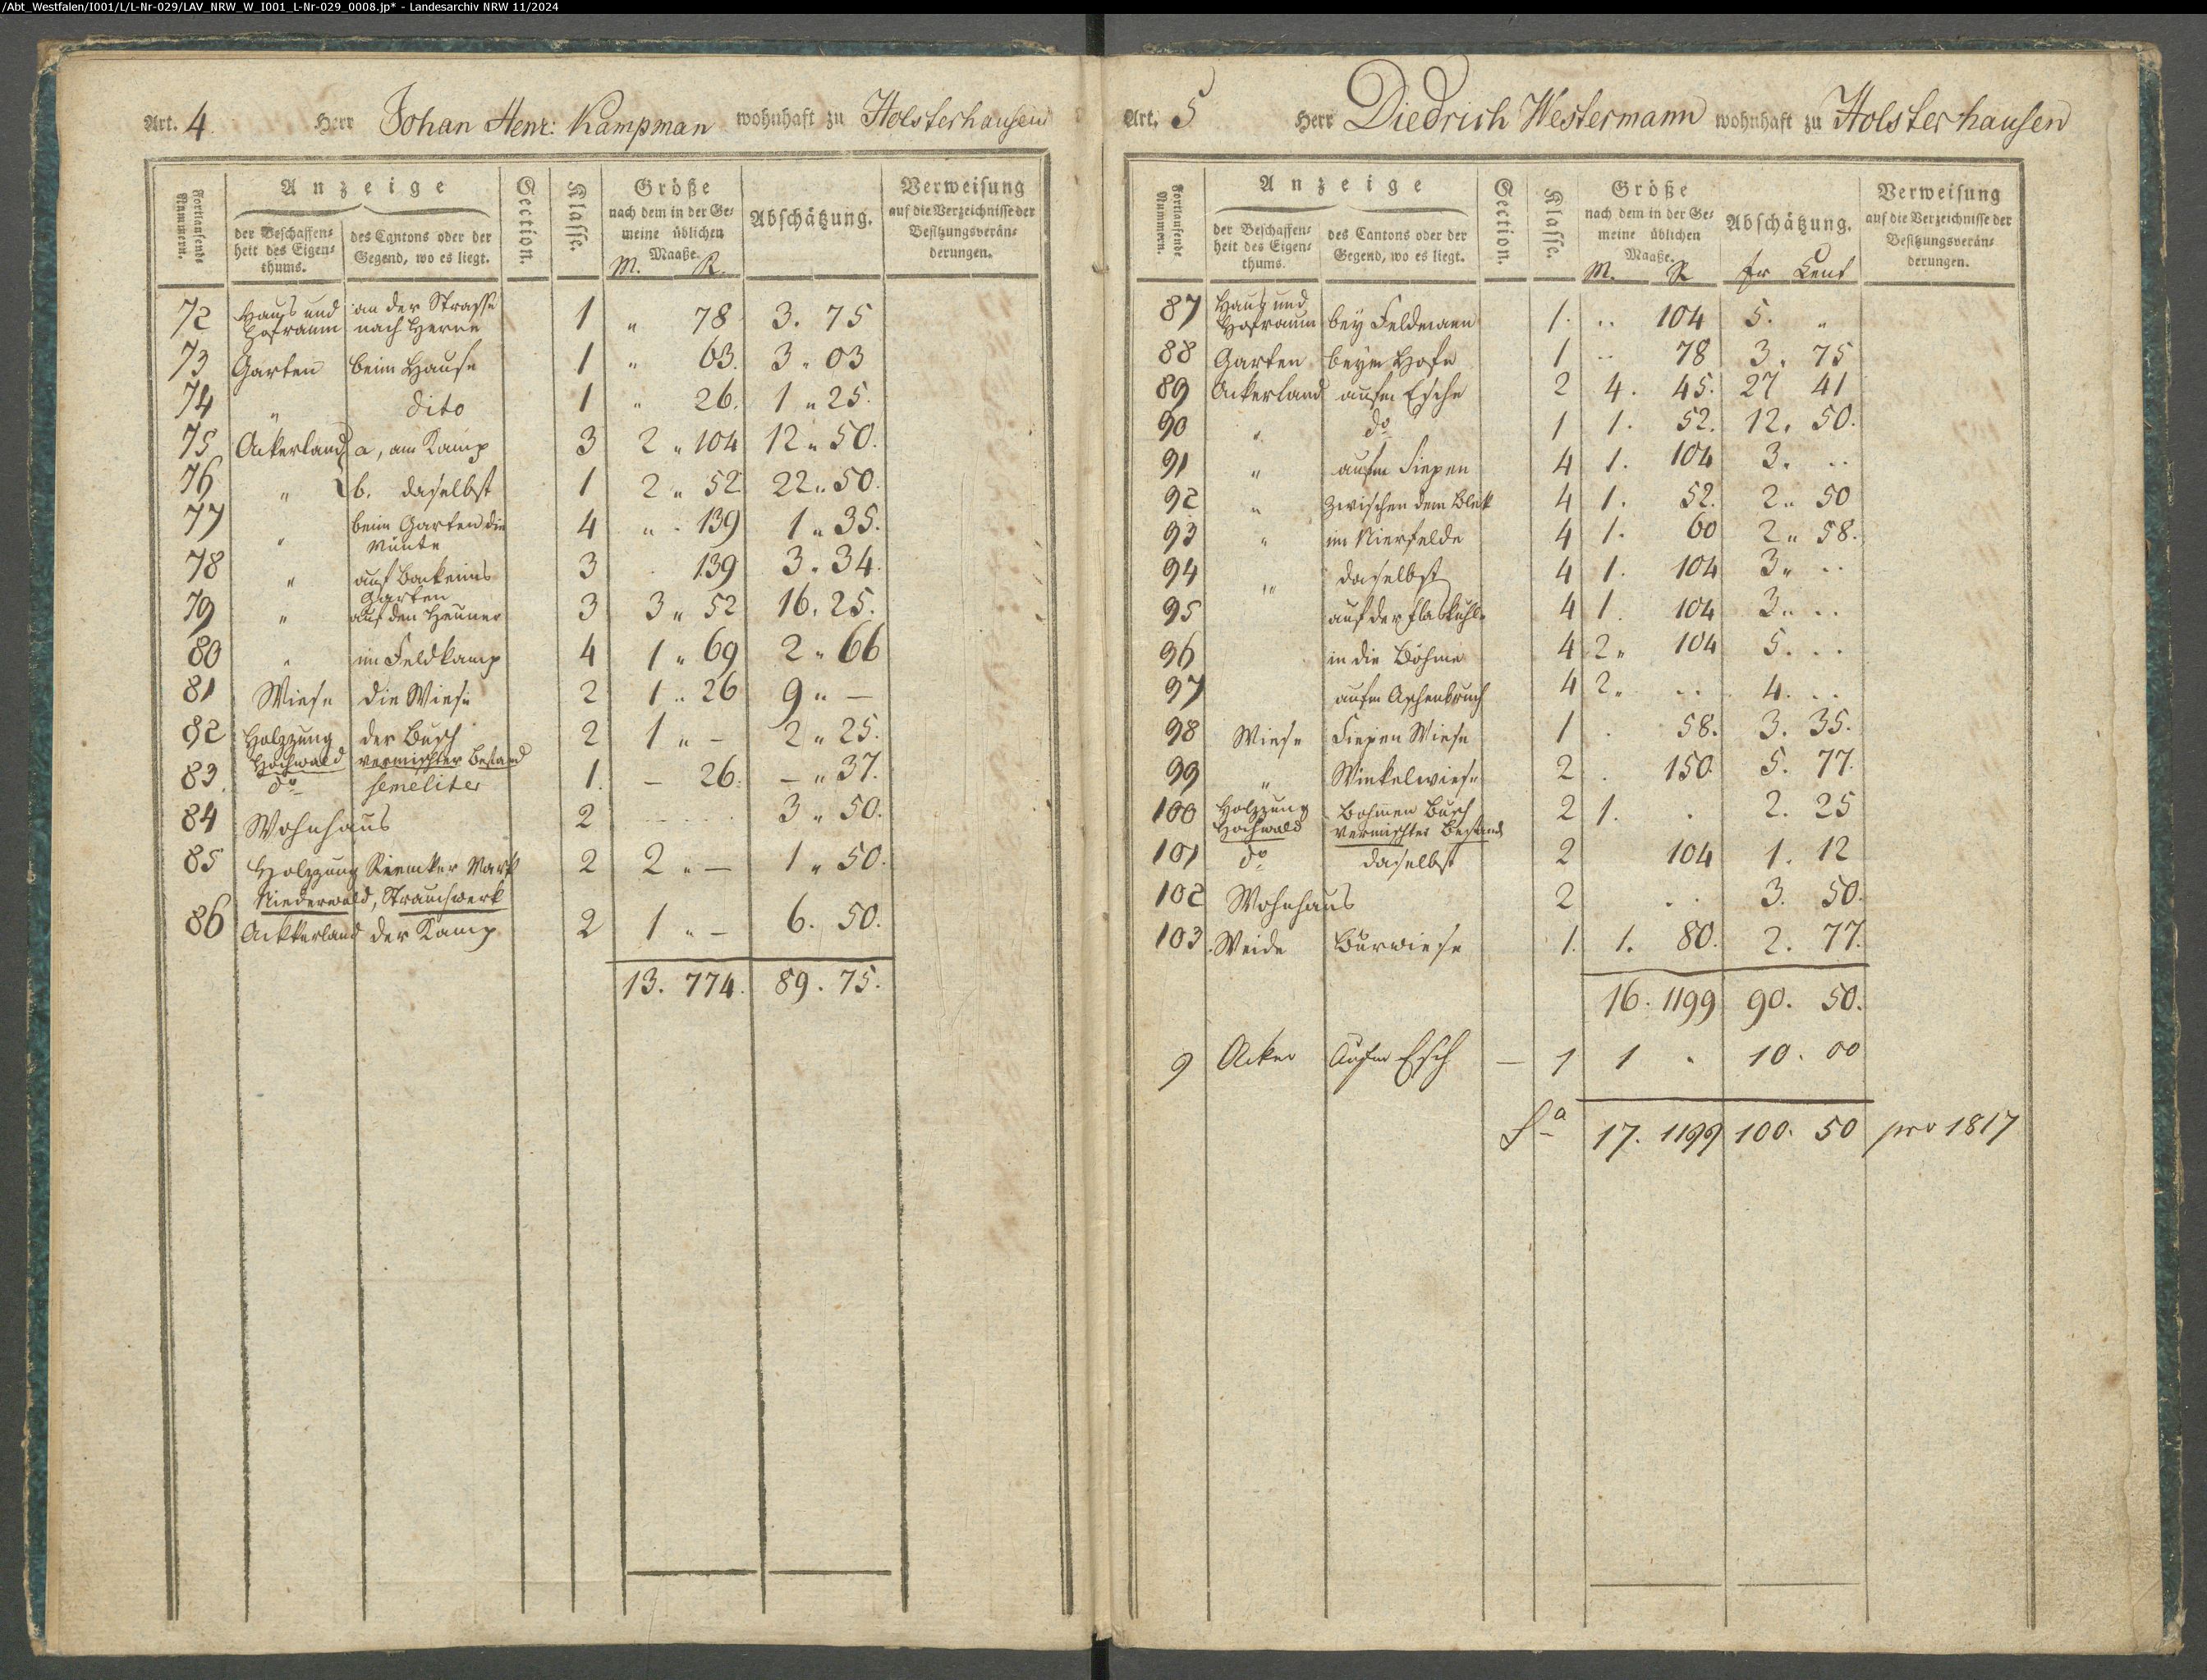 /Abt_Westfalen/I001/L/L-Nr-029/LAV_NRW_W_I001_L-Nr-029_0008.jp* - Landesarchiv NRW 11/2024
Art. 4. Herr Johan Henr: Kampman wohnhaft zu Holsterhausen
Fortlaufende Nummern.
Anzeige
der Beschaffenheit des Eigenthums.
des Cantons oder der Gegend, wo es liegt.
Section.
Klasse.
Größe
nach dem in der Gemeine üblichen Maaße.
M. R.
Abschätzung.
Verweisung
auf die Verzeichnisse der Besitzungsveränderungen.
72 Haus und Hofraum an der Strasse nach Herne 1 " 78 3. 75
73 Garten beim Hause 1 " 63. 3 " 03
74 " dito 1 " 26. 1 " 25.
75 Ackerland a, am Kamp 3 2 " 104 12 " 50.
76 " b. daselbst 1 2 " 52 22 " 50.
77 " beim Garten die 4 " 139 1 " 35.
78 " auf 3 139 3. 34.
Garten
79 " auf den 3 3 " 52 16. 25.
80 " im Feldkamp 4 1 " 69 2 " 66
81 Wiese die Wiese 2 1 " 26 9 " —
82 Holzzung der Busch 2 1 " — 2 " 25.
Hochwald vermischter Bestand
83. do semeliter 1. — 26. — " 37.
84 Wohnhaus 2 3 " 50.
85 Holzzung Riemker Mark 2 2 " — 1 " 50.
Niederwald, Strauchwerk
86 Ackkerland der Kamp 2 1 " — 6. 50.
13. 774. 89. 75.
Art. 5 Herr Diedrich Westermann wohnhaft zu Holsterhausen
Fortlaufende Nummern.
Anzeige
der Beschaffenheit des Eigenthums.
des Cantons oder der Gegend, wo es liegt.
Section.
Klasse.
Größe
nach dem in der Gemeine üblichen Maaße.
M. R.
Abschätzung.
fr Cent
Verweisung
auf die Verzeichnisse der Besitzungsveränderungen.
87 Haus und Hofraum bey Feldmann 1. .. 104 5. "
88 Garten beym Hofe 1 .. 78 3. 75
89 Ackerland aufm Esche 2 4. 45. 27 41
90 " do 1 1. 52. 12. 50.
91 " aufm Siepen 4 1. 104 3. ..
92 " Zwischen dem Blek 4 1. 52. 2 " 50
93 " im Nierfelde 4 1. 60 2 " 58.
94 " daselbst 4 1. 104 3 " ..
95 auf der Flaskuhle 4 1. 104 3 " ..
96 in die Böhme 4 2 " 104 5. ..
97 aufm Aschenbruch 4 2 " .. 4. ..
98 Wiese Siepen Wiese 1 . 58. 3. 35.
99 " Winkelwiese 2 . 150 5. 77.
100 Holzzung Bohmen Busch 2 1. . 2. 25
Hochwald vermischter Bestand
101 do daselbst 2 104 1. 12
102 Wohnhaus 2 .. 3. 50.
103. Weide Burwiese 1. 1. 80. 2. 77.
16. 1199 90. 50.
9 Acker Aufm Esch — 1 1 " 10. 00
Sa 17. 1199 100. 50 pro 1817